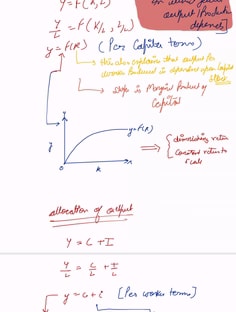 Y=F(K,L)
output/Production
depends]
Y/L = F(K/L, L/L)
y = f(k) (Per Capita terms)
this also explains that output per
worker produced is dependent upon capital
Slope is Marginal Product of
Capital
y
y=f(k)
0
k
⇒ { diminishing return
Constant return to
scale
allocation of output
Y = C + I
Y/L = C/L + I/L
y = c + i [Per worker terms]